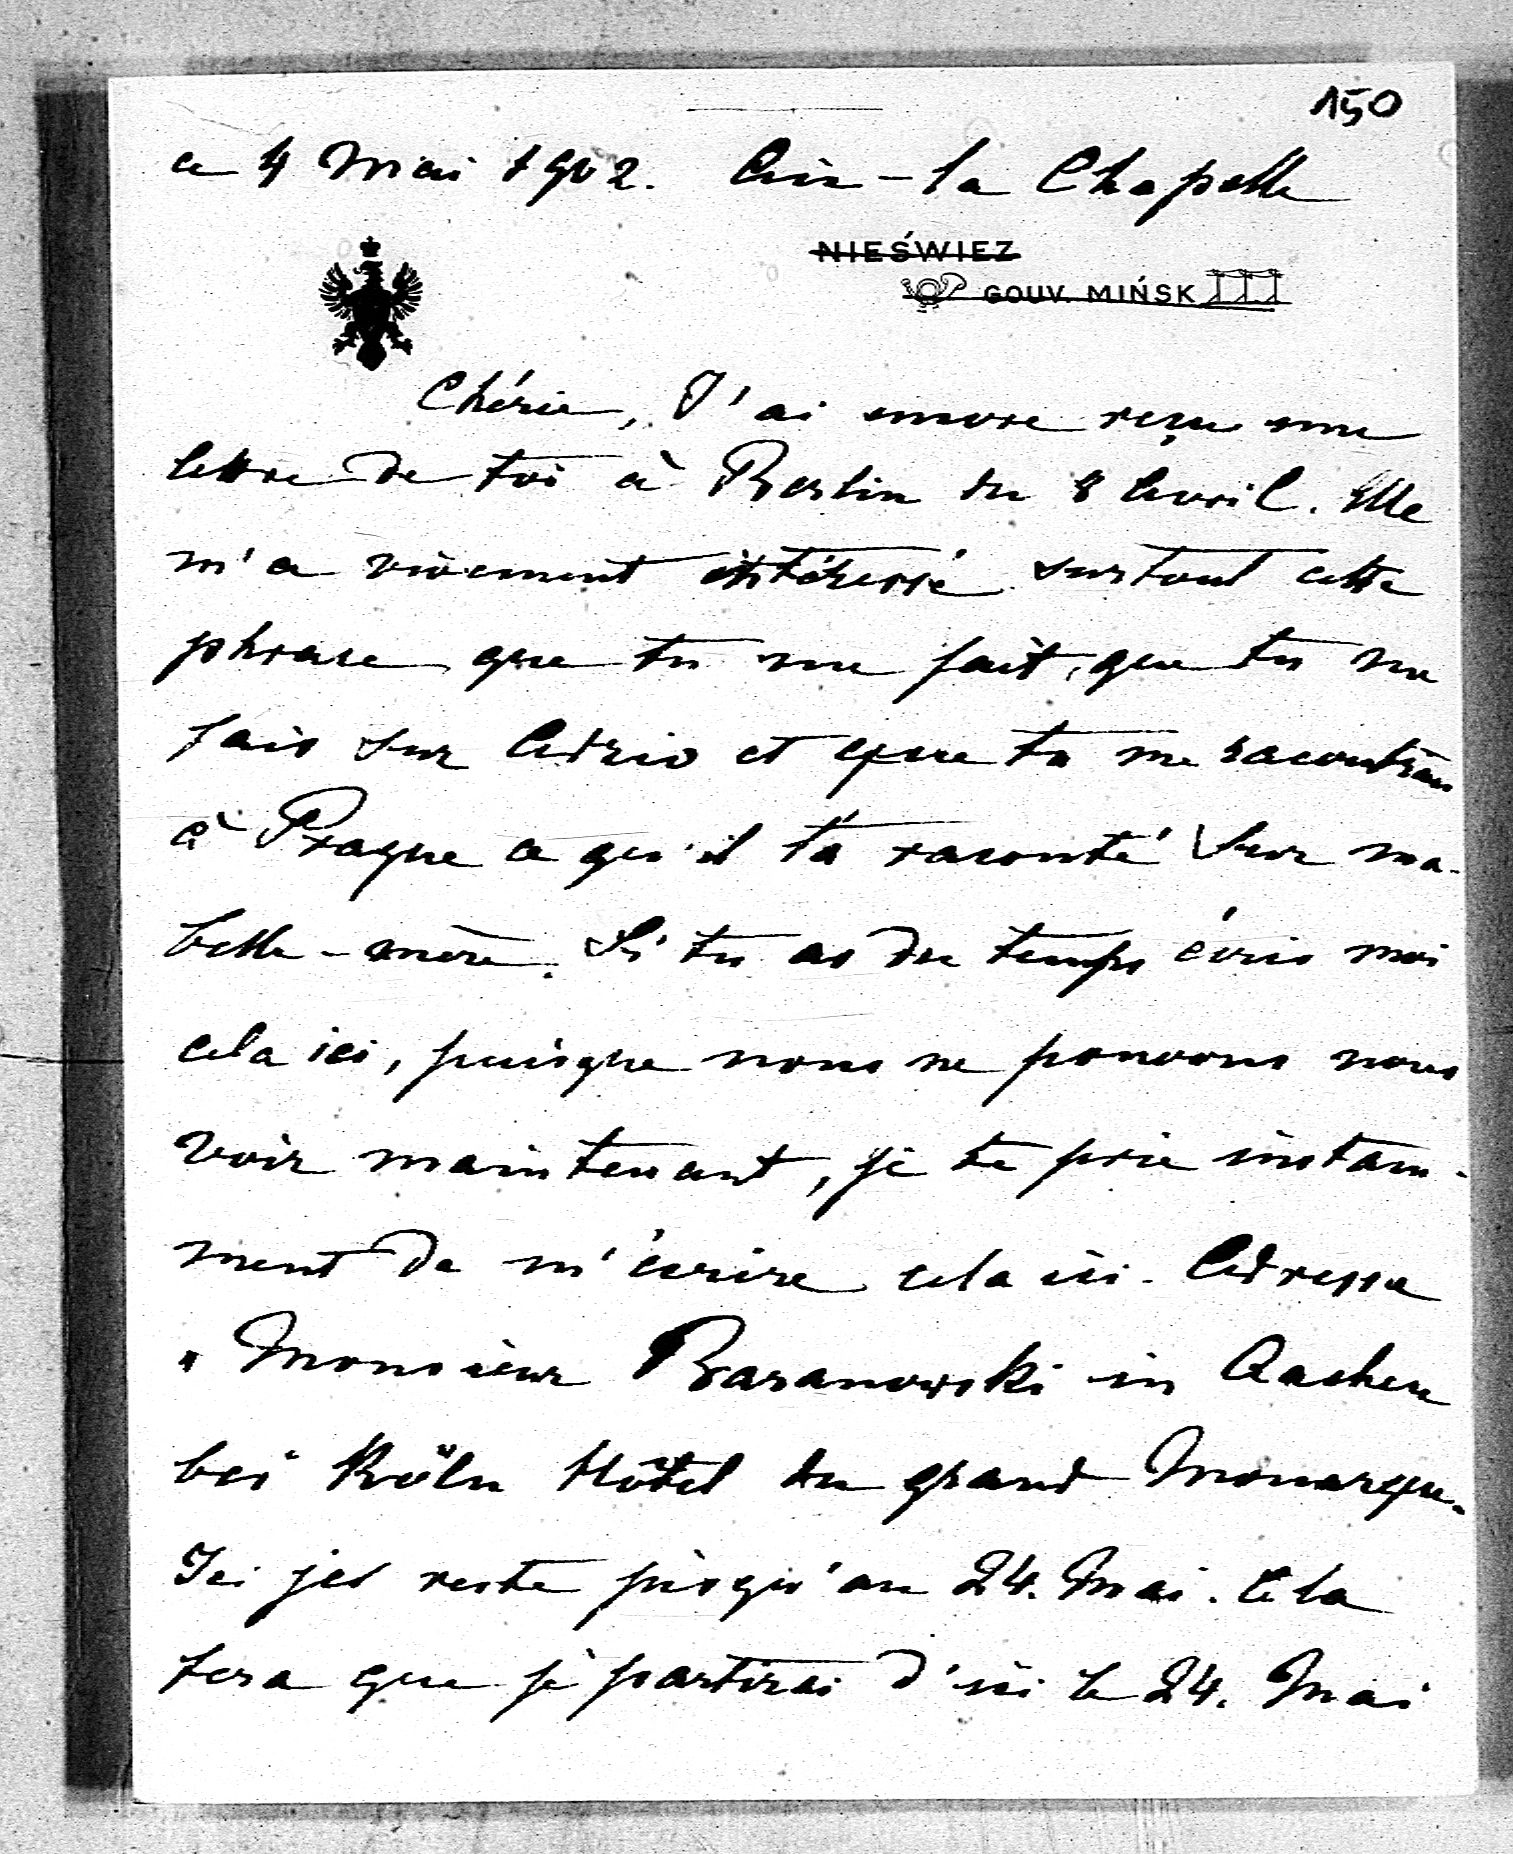 150
ce 4 Mai 1902. Aix-la Chapelle
NIEŚWIEZ
GOUV. MIŃSK
Chérie, J'ai encore reçu une
lettre de toi à Berlin du 8 Avril. Elle
m'a vivement intéressé surtout cette
phrase que tu me fait, que tu me
fais sur Adzio et que tu me racontras
à Prague ce qu'il t'a raconté sur ma
belle-mère. Si tu as du temps écris moi
cela ici, puisque nous ne pouvons nous
voir maintenant, je te prie instam-
ment de m'écrire cela ici. Adresse
„Monsieur Baranowski in Aachen
bei Köln Hôtel du grand Monarque.
Ici je reste jusqu'au 24. Mai. Cela
fera que je partirai d'ici le 24. Mai